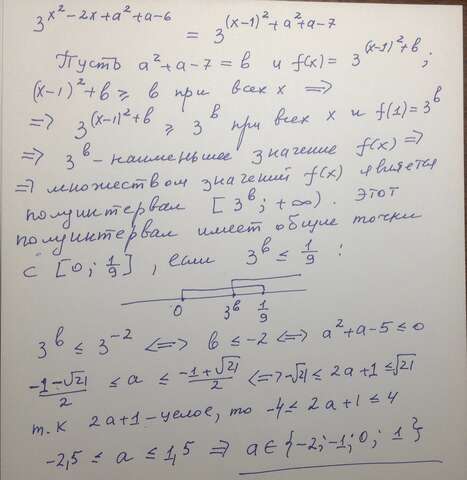 3^{x² - 2x + a² + a - 6} = 3^{(x-1)² + a² + a - 7}
Пусть a² + a - 7 = b и f(x) = 3^{(x-1)² + b};
(x-1)² + b ≥ b при всех x ⟹
⟹ 3^{(x-1)² + b} ≥ 3^b при всех x и f(1) = 3^b
⟹ 3^b - наименьшее значение f(x) ⟹
⟹ множеством значений f(x) является
полуинтервал [3^b; +∞). Этот
полуинтервал имеет общие точки
с [0; 1/9], если 3^b ≤ 1/9 :
0 3^b 1/9
3^b ≤ 3^{-2} ⟺ b ≤ -2 ⟺ a² + a - 5 ≤ 0
(-1-√21)/2 ≤ a ≤ (-1+√21)/2 ⟺ -√21 ≤ 2a+1 ≤ √21
т.к 2a+1 - целое, то -4 ≤ 2a+1 ≤ 4
-2,5 ≤ a ≤ 1,5 ⟹ a ∈ {-2; -1; 0; 1}